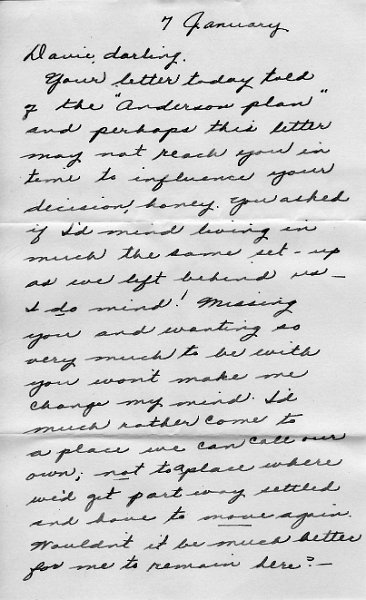 7 January
Davie, darling.
Your letter today told
of the "Anderson plan"
and perhaps this letter
may not reach you in
time to influence your
decision, honey. You asked
if I'd mind living in
much the same set-up
as we left behind us—
I do mind! Missing
you and wanting so
very much to be with
you won't make me
change my mind. I'd
much rather come to
a place we can call our
own; not to a place where
we'd get part way settled
and have to move again.
Wouldn't it be much better
for me to remain here?—